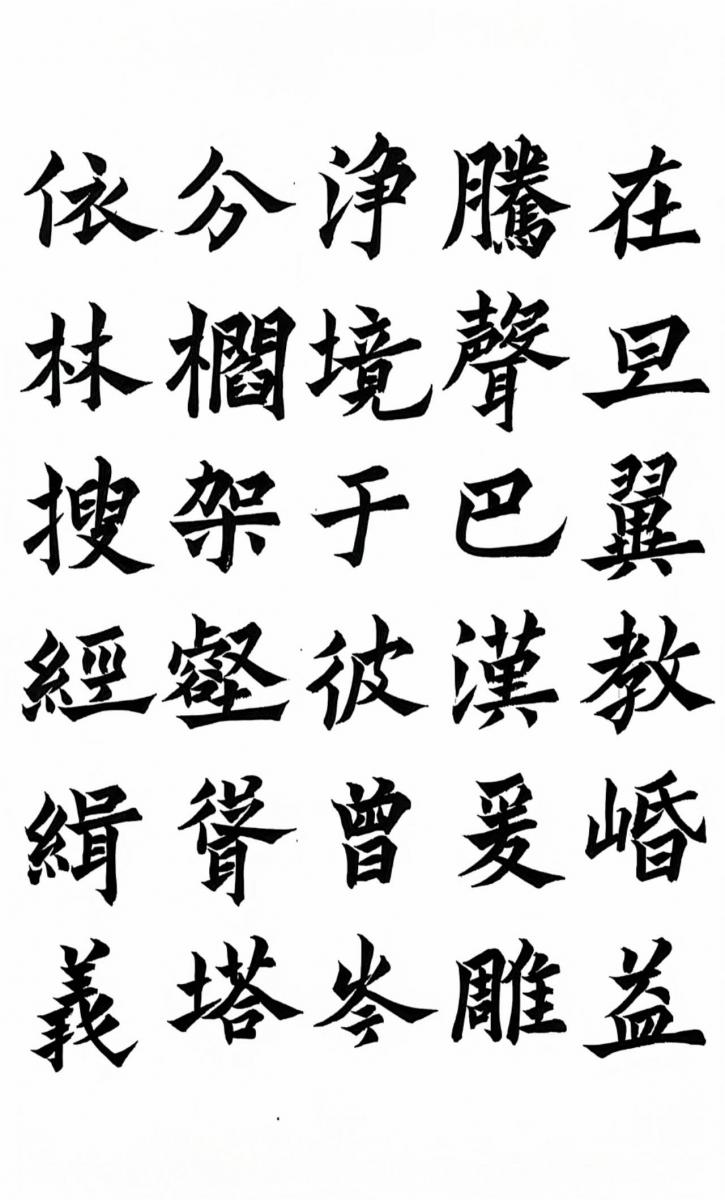 在旦翼教崏益
騰聲巴漢爰雕
浄境于彼曾岑
分櫩架壑聳塔
依林搜經緝義